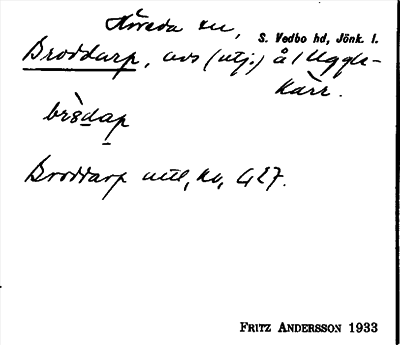 Höreda sn, S. Vedbo hd, Jönk. l.
Broddarp, avs (utj.) å 1 Uggle-
kärr.
brödap
Broddarp utl, kv, G 27.
FRITZ ANDERSSON 1933